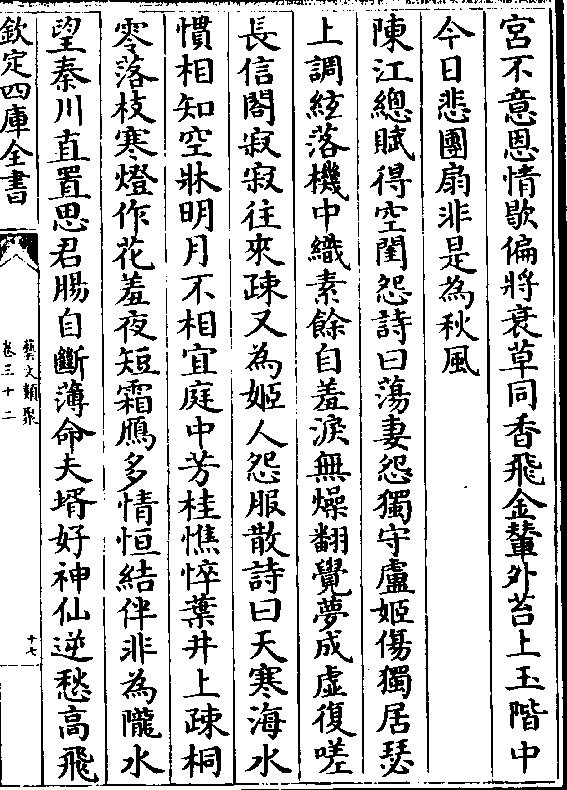 宮不意恩情歇偏將衰草同香飛金輦外苔上玉階中
今日悲團扇非是為秋風
陳江總賦得空閨怨詩曰蕩妻怨獨守盧姬傷獨居瑟
上調絃落機中織素餘自羞淚無燥翻覺夢成虛復嗟
長信閣寂寂往來疎又為姬人怨服散詩曰天寒海水
慣相知空牀明月不相宜庭中芳桂憔悴葉井上疎桐
零落枝寒燈作花羞夜短霜鴈多情恒結伴非為隴水
望秦川直置思君腸自斷薄命夫壻好神仙逆愁高飛
欽定四庫全書
藝文類聚
卷三十二
十七